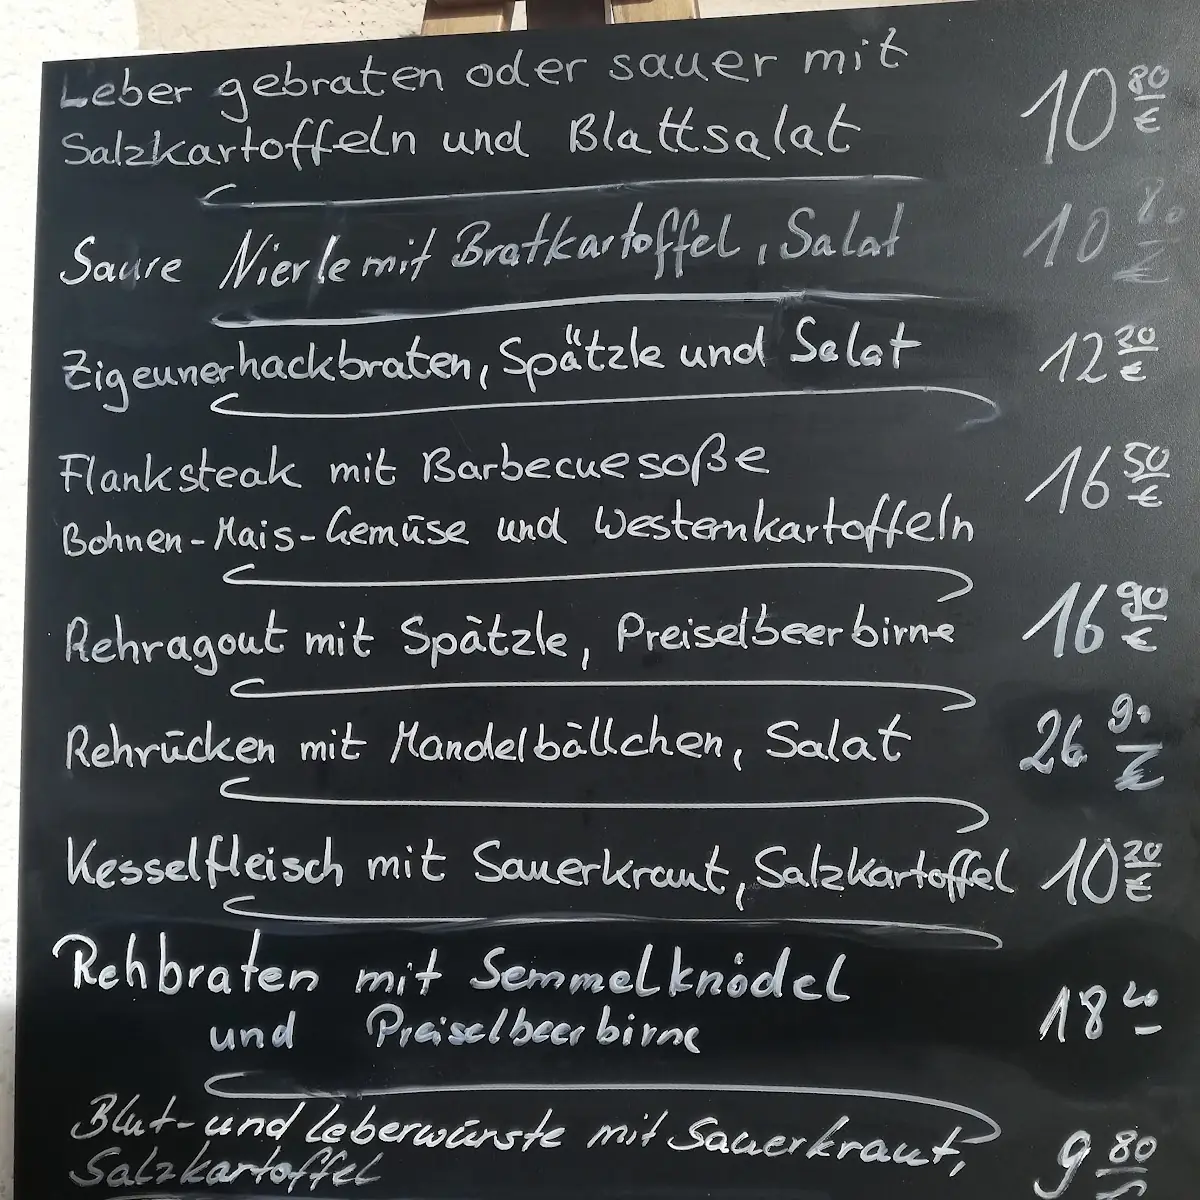 Leber gebraten oder sauer mit 10 80 €
Salzkartoffeln und Blattsalat
Saure Nierle mit Bratkartoffel, Salat 10 80 €
Zigeunerhackbraten, Spätzle und Salat 12 20 €
Flanksteak mit Barbecuesoße 16 50 €
Bohnen-Mais-Gemüse und Westernkartoffeln
Rehragout mit Spätzle, Preiselbeerbirne 16 90 €
Rehrücken mit Mandelbällchen, Salat 26 90 €
Kesselfleisch mit Sauerkraut, Salzkartoffel 10 20 €
Rehbraten mit Semmelknödel
und Preiselbeerbirne 18
Blut- und Leberwürste mit Sauerkraut, 9 80
Salzkartoffel